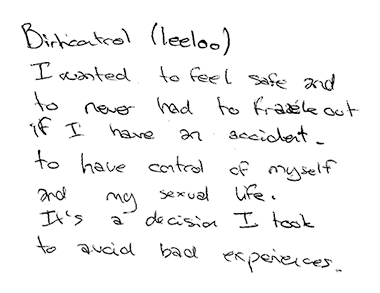 Birthcontrol (leeloo)
I wanted to feel safe and
to never had to freak out
if I have an accident.
to have control of myself
and my sexual life.
It's a decision I took
to avoid bad experiences.